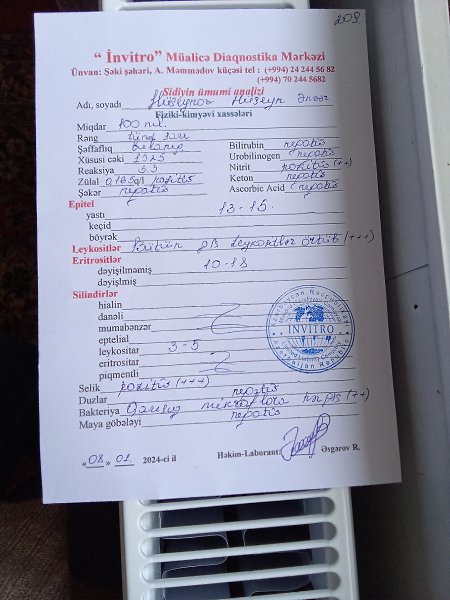 209.
“ İnvitro” Müalicə Diaqnostika Mərkəzi
Ünvan: Şəki şəhəri, A. Məmmədov küçəsi tel : (+994) 24 244 56 82
(+994) 70 244 5682
Sidiyin ümumi analizi
Adı, soyadı Hüseynov Hüseyn Ənvər
Fiziki-kimyəvi xassələri
Miqdar 100 ml.
Rəng tünd sarı
Şəffaflıq bulanıq Bilirubin neqativ
Xüsusi çəki 1025 Urobilinogen neqativ
Reaksiya 5.5 Nitrit pozitiv (++)
Zülal 0,165 q/l pozitiv Keton neqativ
Şəkər neqativ Ascorbic Acid neqativ
Epitel
yastı 13-15.
keçid
böyrək
Leykositlər Bütün g/s leykositlər örtüb (+++)
Eritrositlər
dəyişilməmiş 10-18
dəyişlmiş
Silindirlər
hialin
danəli
mumabənzər
eptelial
leykositar 3-5
eritrositar
piqmentli
Selik pozitiv (+++)
Duzlar neqativ
Bakteriya Qarışıq mikroflora
Maya göbələyi neqativ
« 08 » 01 2024-ci il
Həkim-Laborant: Əsgərov R.
İNVİTRO